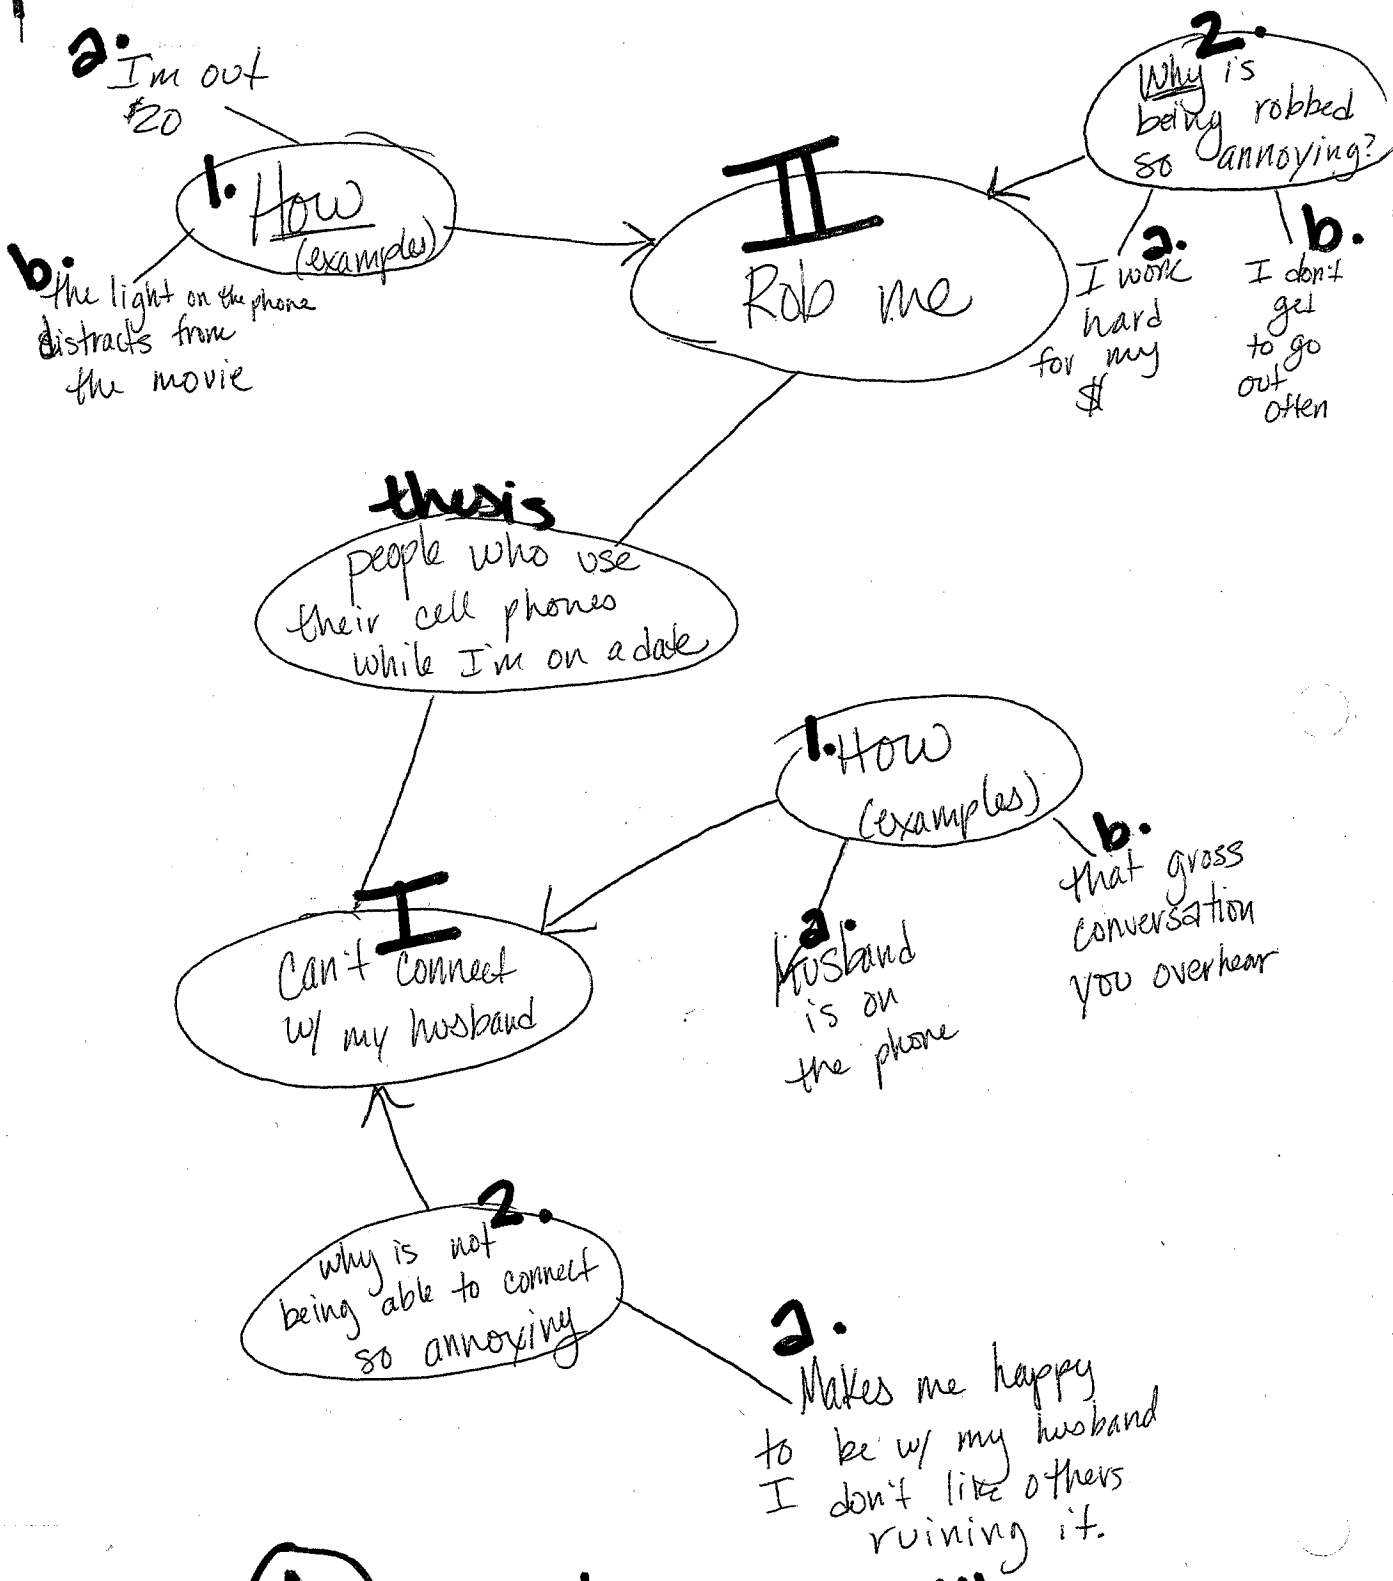 a.
I'm out
$20
1.
How
(examples)
b.
the light on the phone
distracts from
the movie
II
Rob me
2.
Why is
being robbed
so annoying?
a.
I work
hard
for my
$
b.
I don't
get
to go
out
often
thesis
people who use
their cell phones
while I'm on a date
I
Can't connect
w/ my husband
1.
How
(examples)
a.
Husband
is on
the phone
b.
that gross
conversation
you overhear
2.
why is not
being able to connect
so annoying
a.
Makes me happy
to be w/ my husband
I don't like others
ruining it.